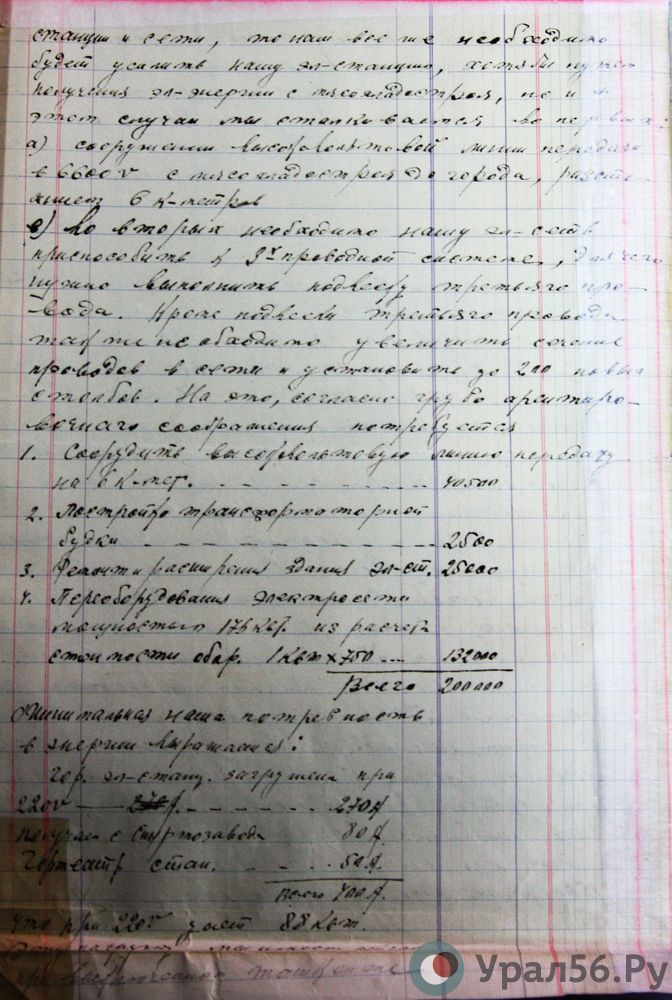 станции и сети, то нам все же необходимо
будет усилить нашу эл-станцию, хотя бы путем
получения эл-энергии с мясохладостроя, но и в
этом случаи мы сталкиваемся во первых:
а) сооружении высоковольтовой линии передачи
в 6600v с мясохладостроя до города, рассто-
янием 6 к-метров
в) Во вторых необходимо нашу эл-сеть
приспособить к 3х проводной системе, для чего
нужно выполнить подвеску третьяго про-
вода. Кроме подвески третьяго провода
также необходимо увеличить сечение
проводов в сети и установить до 200 новых
столбов. На это, согласно грубо ориентиро-
вочнаго соображения потребуется
1. Соорудить высоковольтовую линию передачу
на 6 к-мет. - - - - - - - - 40500
2. Постройка трансформаторной
будки - - - - - - - - - 2500
3. Ремонт и расширения здания эл-ст. 25000
4. Переоборудования электросети
мощностью 176 квт. из расчета
стоимости обор. 1 квт × 750 .... 132000
Всего 200000
наша потребность
в энергии выражается:
Гор. эл-станц. загружена при
220v - - - - - - 270А
Получаем с Спиртозавода 80А.
стан. - - - - 50А.
Всего 400А.
что при 220v дает 88 квт.
Урал56.Ру